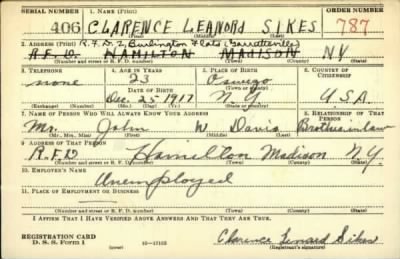 SERIAL NUMBER 1. NAME (Print) ORDER NUMBER
406 CLARENCE LEANORD SIKES 787
(First) (Middle) (Last)
R.F.D. 2, Burlington Flats (Garrattsville)
2. ADDRESS (Print)
R.F.D. HAMILTON MADISON N.Y.
(Number and street or R. F. D. number) (Town) (County) (State)
3. TELEPHONE 4. AGE IN YEARS 5. PLACE OF BIRTH 6. COUNTRY OF CITIZENSHIP
none 23 Oswego
DATE OF BIRTH (Town or county)
Dec 25-1917 N.Y. U.S.A.
(Exchange) (Number) (Mo.) (Day) (Yr.) (State or country)
7. NAME OF PERSON WHO WILL ALWAYS KNOW YOUR ADDRESS 8. RELATIONSHIP OF THAT PERSON
Mr. John W. Davis Brother in law
(Mr., Mrs., Miss) (First) (Middle) (Last)
9. ADDRESS OF THAT PERSON
R.F.D Hamilton Madison N.Y.
(Number and street or R. F. D. number) (Town) (County) (State)
10. EMPLOYER'S NAME
Unemployed
11. PLACE OF EMPLOYMENT OR BUSINESS
(Number and street or R. F. D. number) (Town) (County) (State)
I AFFIRM THAT I HAVE VERIFIED ABOVE ANSWERS AND THAT THEY ARE TRUE.
REGISTRATION CARD
D. S. S. Form 1 16-17105 Clarence Lenard Sikes
(Registrant's signature)